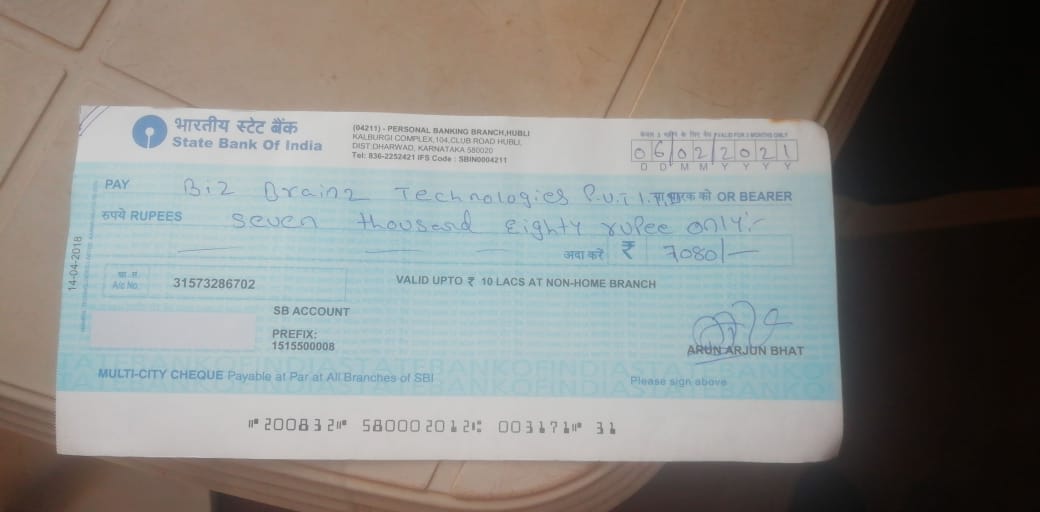 भारतीय स्टेट बैंक
State Bank Of India
(04211) - PERSONAL BANKING BRANCH,HUBLI
KALBURGI COMPLEX,104,CLUB ROAD HUBLI,
DIST:DHARWAD, KARNATAKA 580020
Tel: 836-2252421 IFS Code : SBIN0004211
VALID FOR 3 MONTHS ONLY
06022021
D D M M Y Y Y Y
PAY Biz Brainz Technologies P.v.t को OR BEARER
रुपये RUPEES seven thousand Eighty rupee only:-
अदा करें ₹ 7080/-
14-04-2018
खा. सं.
A/c No. 31573286702
VALID UPTO ₹ 10 LACS AT NON-HOME BRANCH
SB ACCOUNT
PREFIX:
1515500008
ARUN ARJUN BHAT
MULTI-CITY CHEQUE Payable at Par at All Branches of SBI
Please sign above
⑈200832⑈ 580002012⑆ 003171⑈ 31